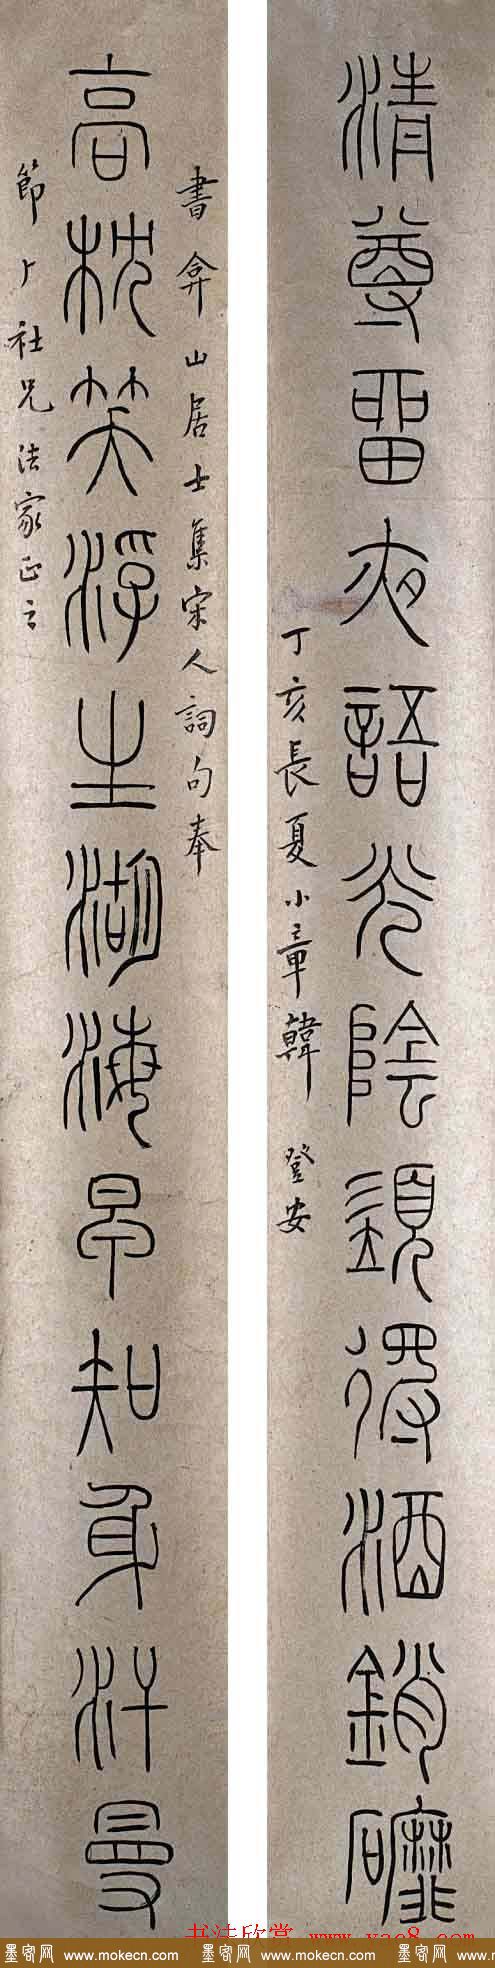 清尊畱夜語光陰須得酒銷䃺
丁亥長夏小章韓登安
書弇山居士集宋人詞句奉
高枕笑浮生湖海早知身汗曼
節广社兄法家正之
书法欣赏 www.yac8.com
墨客网 www.mokecn.com 墨客网 www.mokecn.com 墨客网 www.mokecn.com